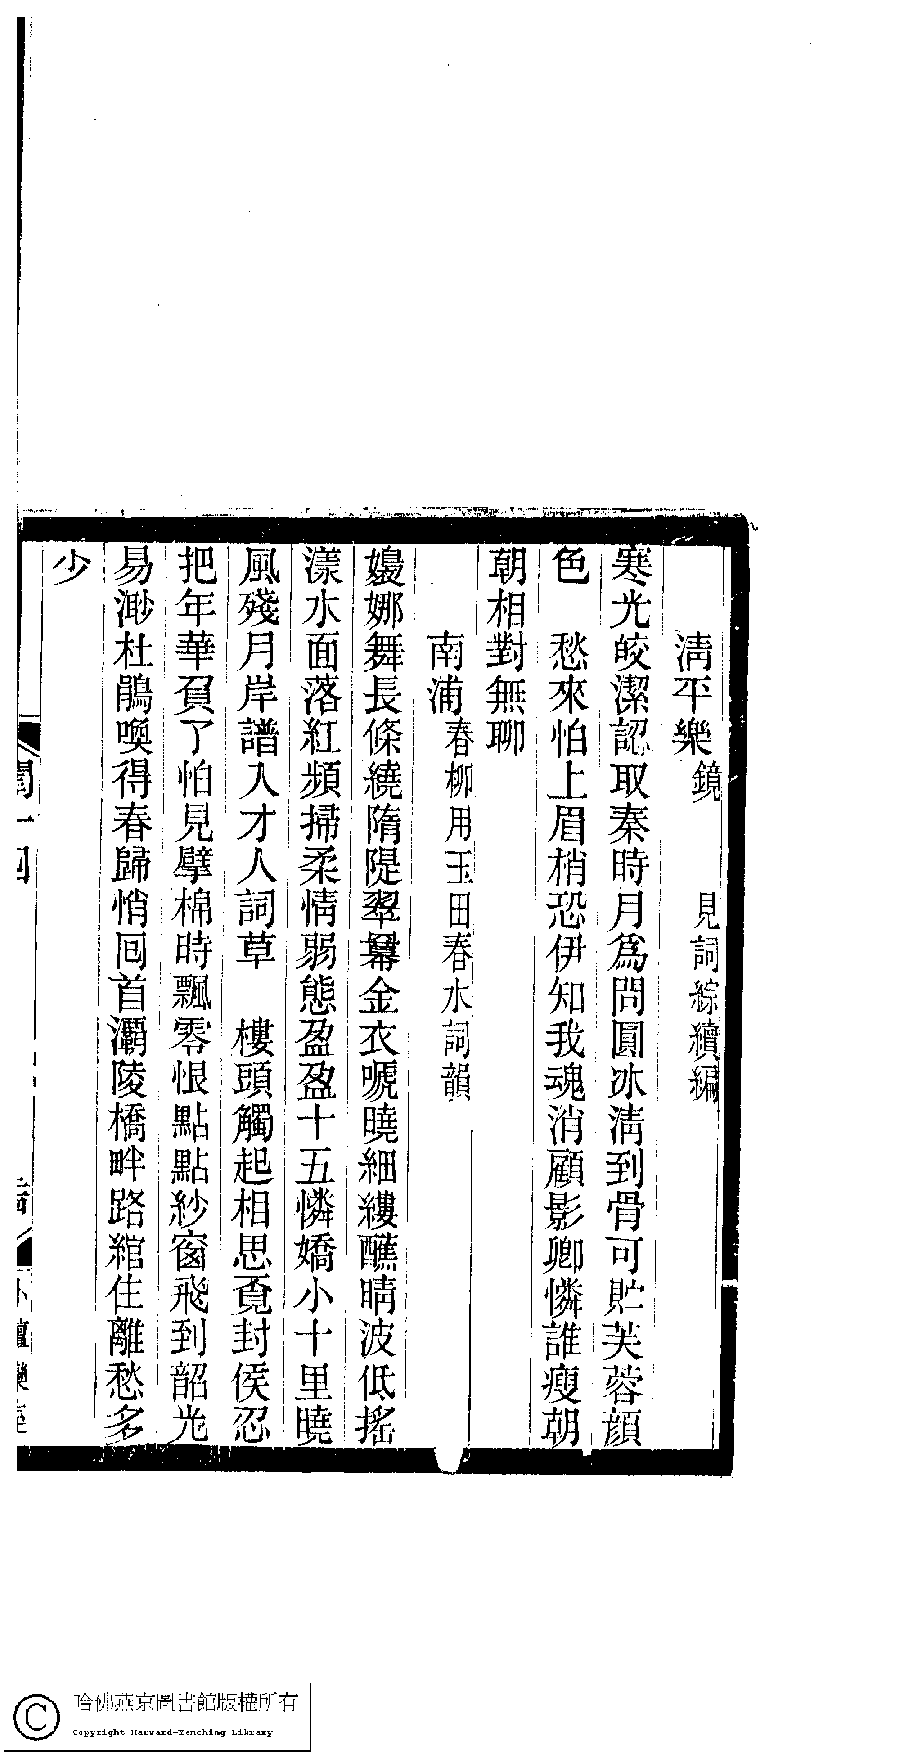 清平樂鏡　見詞綜續編
寒光皎潔認取秦時月爲問圓冰淸到骨可貯芙蓉顔
色　愁來怕上眉梢恐伊知我魂消顧影卿憐誰瘦朝
朝相對無聊
南浦春柳用玉田春水詞韻
嬝娜舞長條繞隋隄翠幕金衣啼曉細縷蘸晴波低搖
漾水面落紅頻掃柔情弱態盈盈十五憐嬌小十里曉
風殘月岸譜入才人詞草　樓頭觸起相思覔封侯忍
把年華負了怕見擘棉時飄零恨點點紗窗飛到韶光
易渺杜鵑喚得春歸悄囘首灞陵橋畔路綰住離愁多
少
閨十四
哈佛燕京圖書館版權所有
Copyright Harvard-Yenching Library